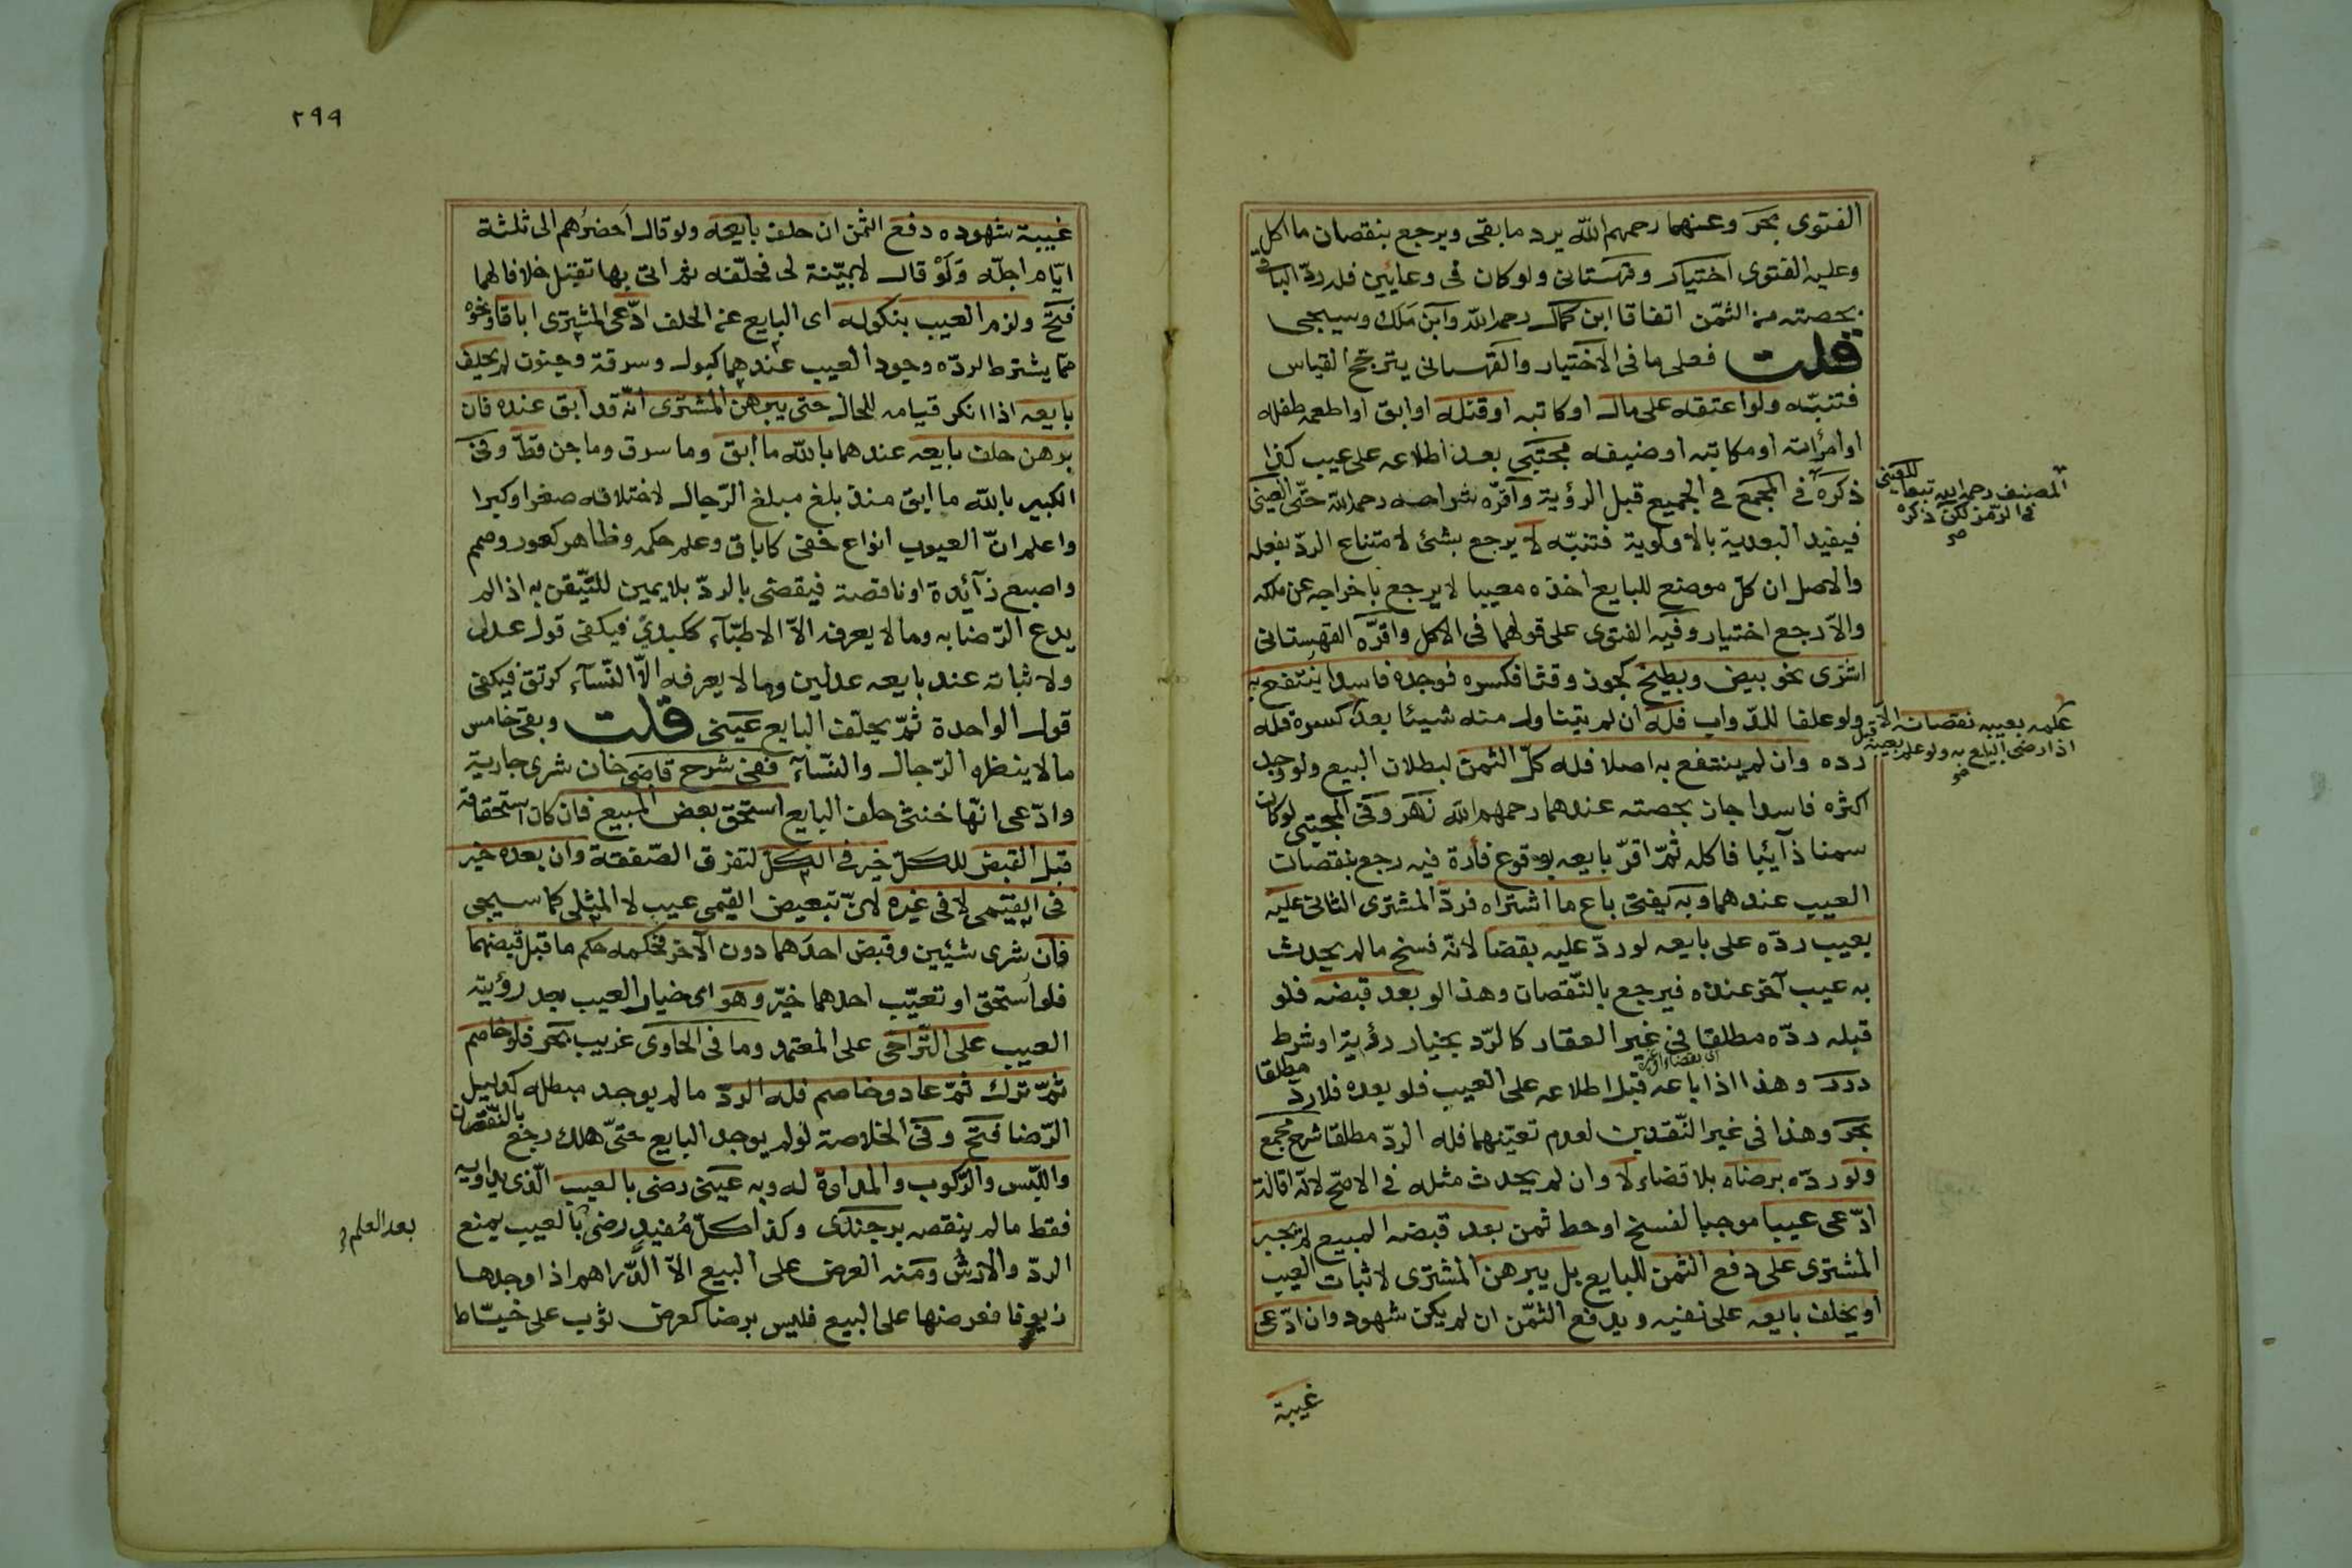 الفتوى بحر وعنهما رحمهم الله يرد ما بقى ويرجع بنقصان ما اكل
وعليه الفتوى اختيار وقهستانى ولو كان فى وعائين فله ردّ الباقى
بحصته من الثمن اتفاقا ابن كمال رحمه الله وابن ملك وسيجى
قلت فعلى ما فى الاختيار والقهستانى يترجح القياس
فتنبّه ولو اعتقه على مال او كاتبه او قتله او ابق او اطعمه طفله
او امرأته او مكاتبه او ضيفه مجتبى بعد اطلاعه على عيب كذا
ذكره فى المجمع فى الجميع قبل الرؤية واقرّه شراحه رحمه الله حتى العينى
فيفيد البعدية بالاولوية فتنبّه لا يرجع بشئ لامتناع الردّ بفعله
والاصل ان كل موضع للبايع اخذه معيبا لا يرجع باخراجه عن ملكه
والاّ رجع اختيار وفيه الفتوى على قولهما فى الاكل واقرّه القهستانى
اشترى نحو بيض وبطيخ كجوز وقثا فكسره فوجده فاسدا ينتفع به
ولو علفا للدّواب فله ان لم يتناول منه شيئا بعد كسره فله
رده وان لم ينتفع به اصلا فله كلّ الثمن لبطلان البيع ولو وجد
اكثره فاسدا جاز بحصته عندهما رحمهم الله نهر وفى المجتبى لو كان
سمنا ذآئبا فاكله ثمّ اقرّ بايعه بوقوع فأرة فيه رجع بنقصان
العيب عندهما وبه يفتى باع ما اشتراه فردّ المشترى الثانى عليه
بعيب ردّه على بايعه لو ردّ عليه بقضا لانّه فسخ ما لم يحدث
به عيب آخر عنده فيرجع بالنّقصان وهذا لو بعد قبضه فلو
قبله ردّه مطلقا فى غير العقار كالرّد بخيار رؤية او شرط
درر وهذا اذا باعه قبل اطلاعه على العيب فلو بعده فلا ردّ مطلقا
بحر وهذا فى غير النّقدين لعدم تعيّنهما فله الردّ مطلقا شرح مجمع
ولو ردّه برضاه بلا قضاء لا وان لم يحدث مثله فى الاصحّ لانّه اقالة
ادّعى عيبا موجبا لفسخ او حط ثمن بعد قبضه المبيع لم يجبر
المشترى على دفع الثمن للبايع بل يبرهن المشترى لاثبات العيب
او يحلف بايعه على نفيه ويدفع الثمّن ان لم يكن شهود وان ادّعى
غيبة
المصنف رحمه الله تبعا للعينى
فى الرّمز لكن ذكره
صح
علمه بعيبه نقصان الا
اذا رضى البايع به ولو علم بعيبه قبل
صح
٢٩٩
غيبة شهوده دفع الثمن ان حلف بايعه ولو قال احضرهم الى ثلثة
ايّام اجلّه ولو قال لا بيّنة لى فحلّفه ثم اتى بها تقبل خلافا لهما
فتح ولزم العيب بنكوله اى البايع عن الحلف ادّعى المشترى اباقا ونحوه
ممّا يشترط لردّه وجود العيب عندهما كبول وسرقة وجنون لم يحلف
بايعه اذا انكر قيامه للحال حتى يبرهن المشترى انّه قد ابق عنده فان
برهن حلف بايعه عندهما بالله ما ابق وما سرق وما جن قط وفى
الكبير بالله ما ابق منذ بلغ مبلغ الرّجال لاختلافه صغرا وكبرا
واعلم انّ العيوب انواع خفى كاباق وعلم حكمه وظاهر كعور وصمم
واصبع زآئدة او ناقصة فيقضى بالردّ بلا يمين للتّيقن به اذا لم
يدع الرّضا به وما لا يعرفه الاّ الاطبّآء ككبدىّ فيكفى قول عدل
ولاثباته عند بايعه عدلين وما لا يعرفه الاّ النّسآء كرتق فيكفى
قول الواحدة ثمّ يحلّف البايع عينى قلت وبقى خامس
ما لا ينظره الرّجال والنّسآء ففى شرح قاضى خان شرى جارية
وادّعى انّها خنثى حلف البايع استحق بعض المبيع فان كان استحقاقه
قبل القبض للكلّ خير فى الكلّ لتفرق الصّفقة وان بعده خير
فى القيمى لا فى غيره لانّ تبعيض القيمى عيب لا المثلى كما سيجى
فان شرى شيئين وقبض احدهما دون الآخر فحكمه حكم ما قبل قبضهما
فلو استحق او تعيّب احدهما خيّر وهو اى خيار العيب بعد رؤية
العيب على التّراخى على المعتمد وما فى الحاوى غريب بحر فلو خاصم
ثمّ ترك ثمّ عاد وخاصم فله الردّ ما لم يوجد مبطله كدليل
الرّضا فتح وفى الخلاصة لو لم يوجد البايع حتىّ هلك رجع بالنّقصان
واللّبس والرّكوب والمداوة له وبه عينى رضى بالعيب الّذى يداويه
فقط ما لم ينقصه برجندى وكذا كلّ مُفيد رضى بالعيب يمنع
الردّ والارش ومنه العرض على البيع الاّ الدّراهم اذا وجدها
زيوفا فعرضها على البيع فليس برضا كعرض ثوب على خيّاط
بعد العلم